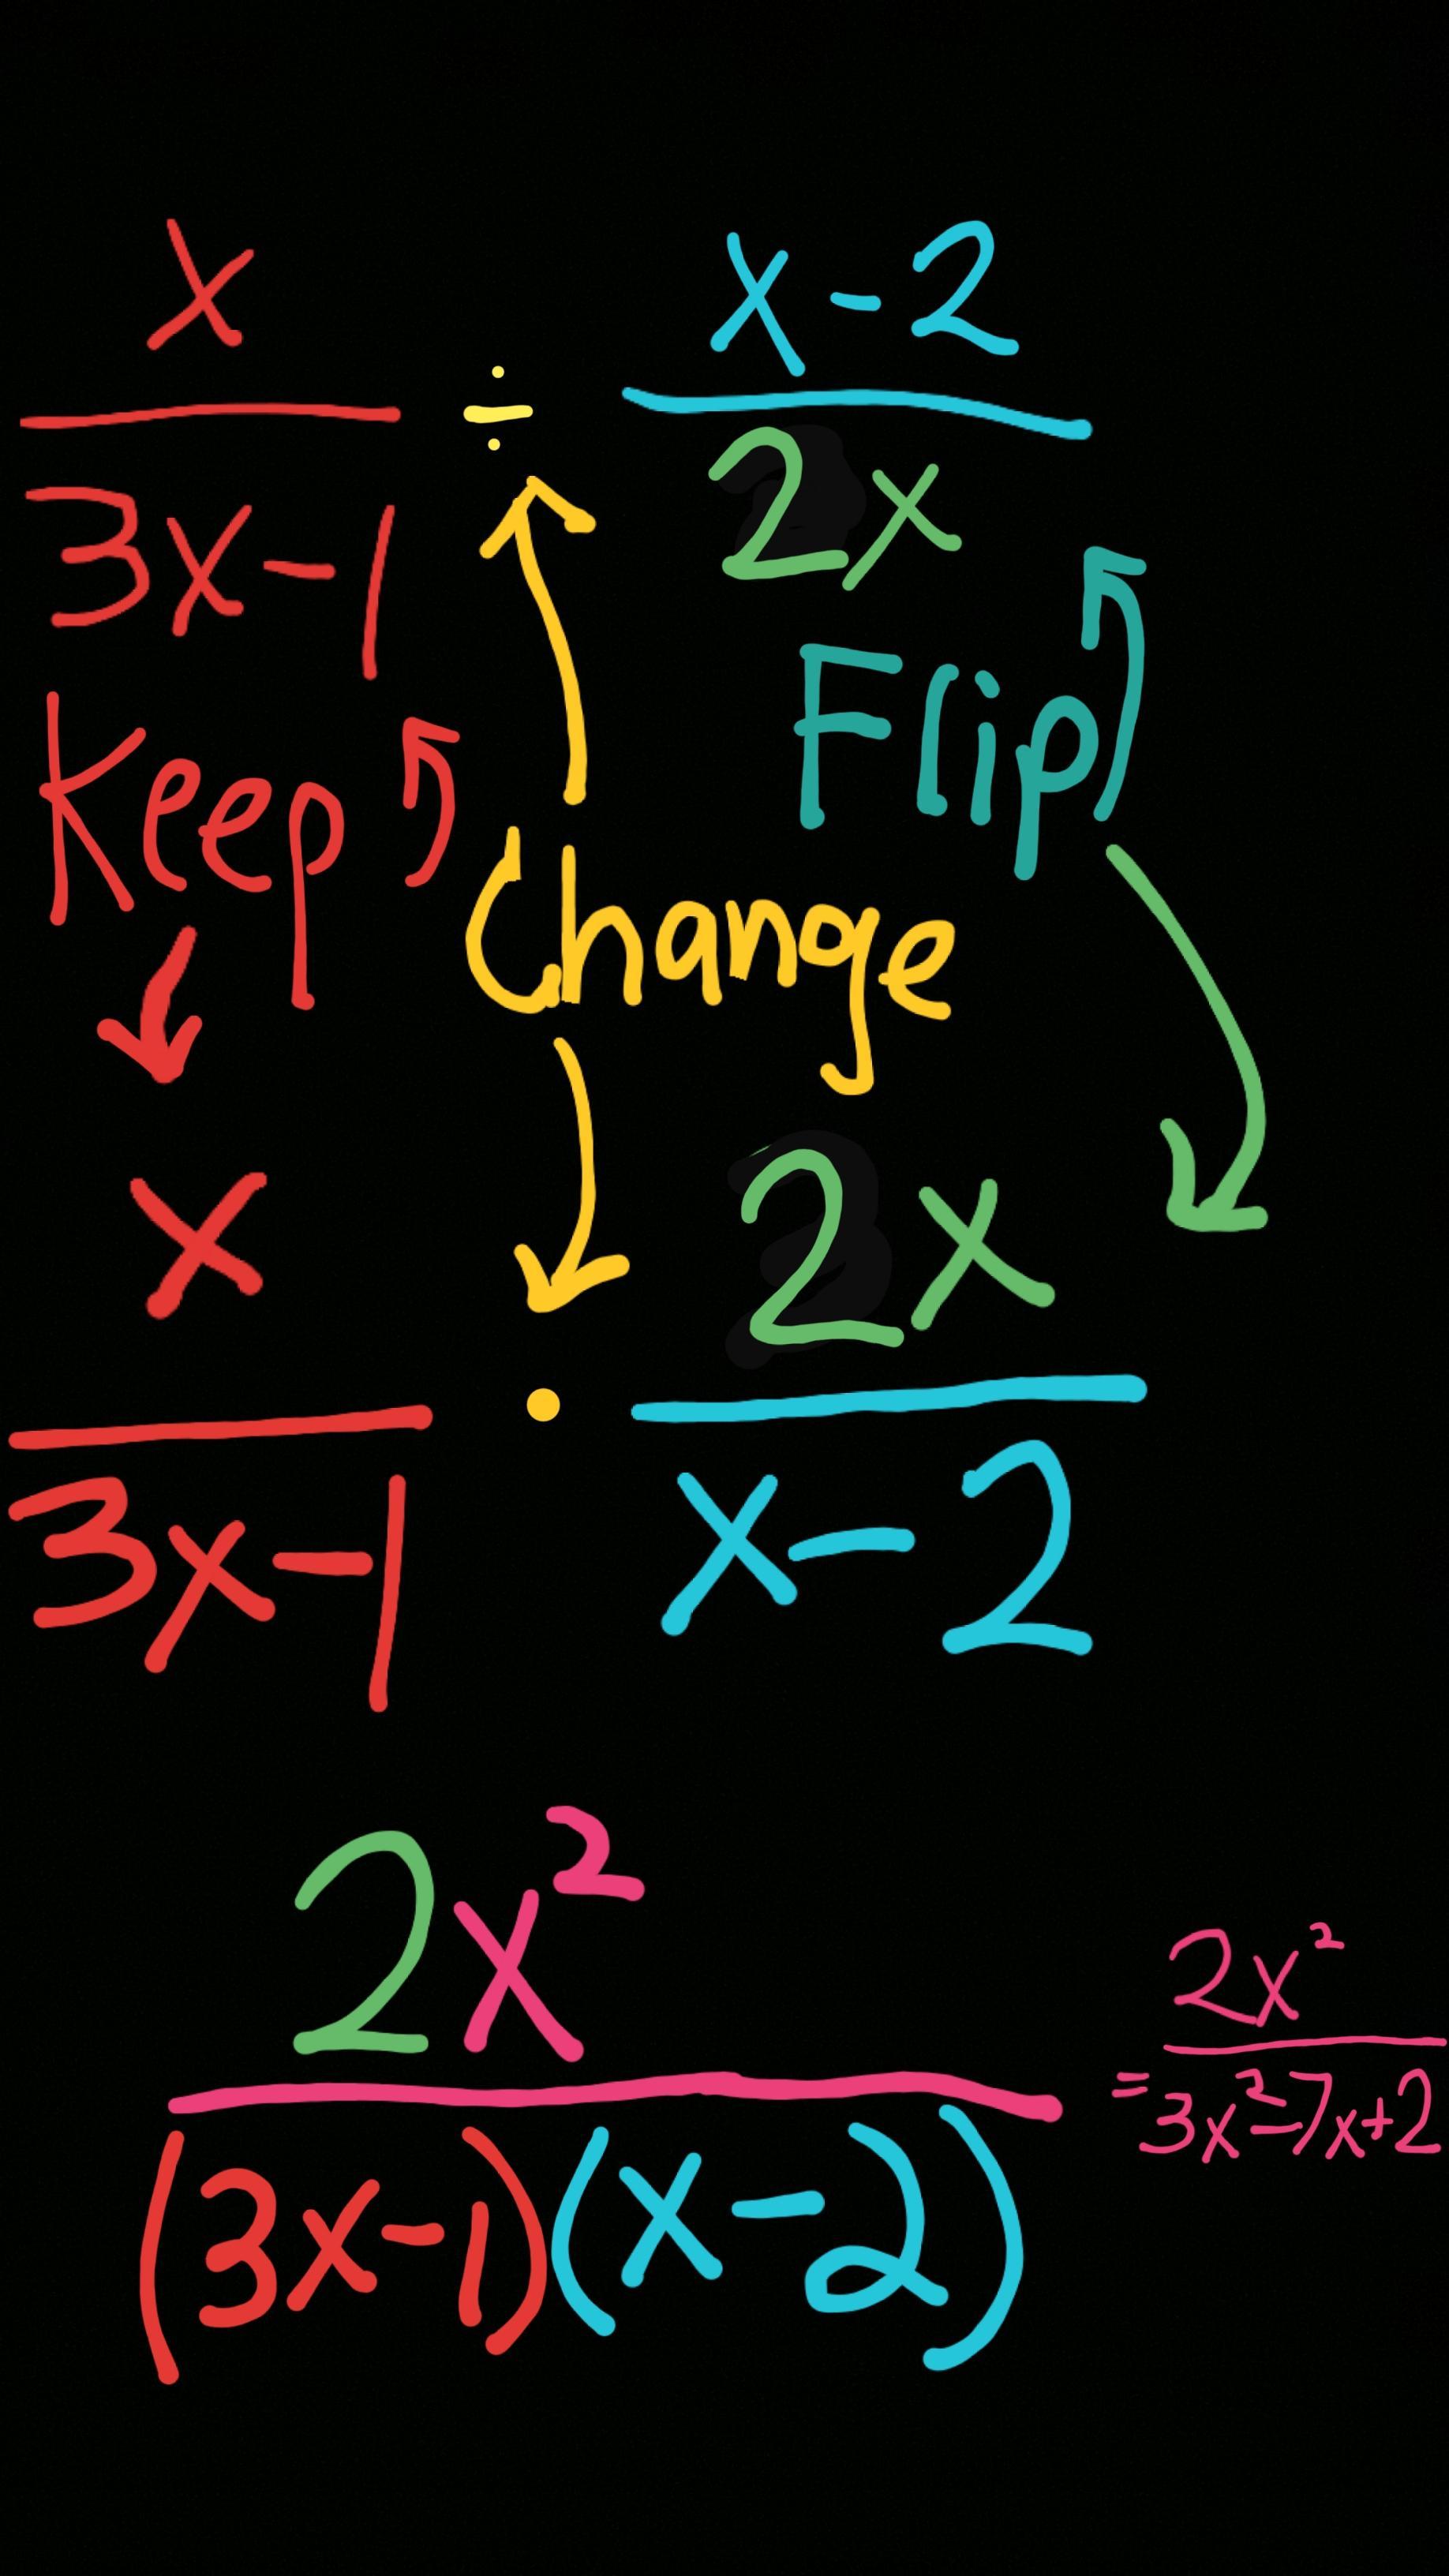 x/(3x-1) ÷ (x-2)/(2x)
Keep Change Flip
x/(3x-1) · (2x)/(x-2)
(2x²)/((3x-1)(x-2)) = (2x²)/(3x²-7x+2)